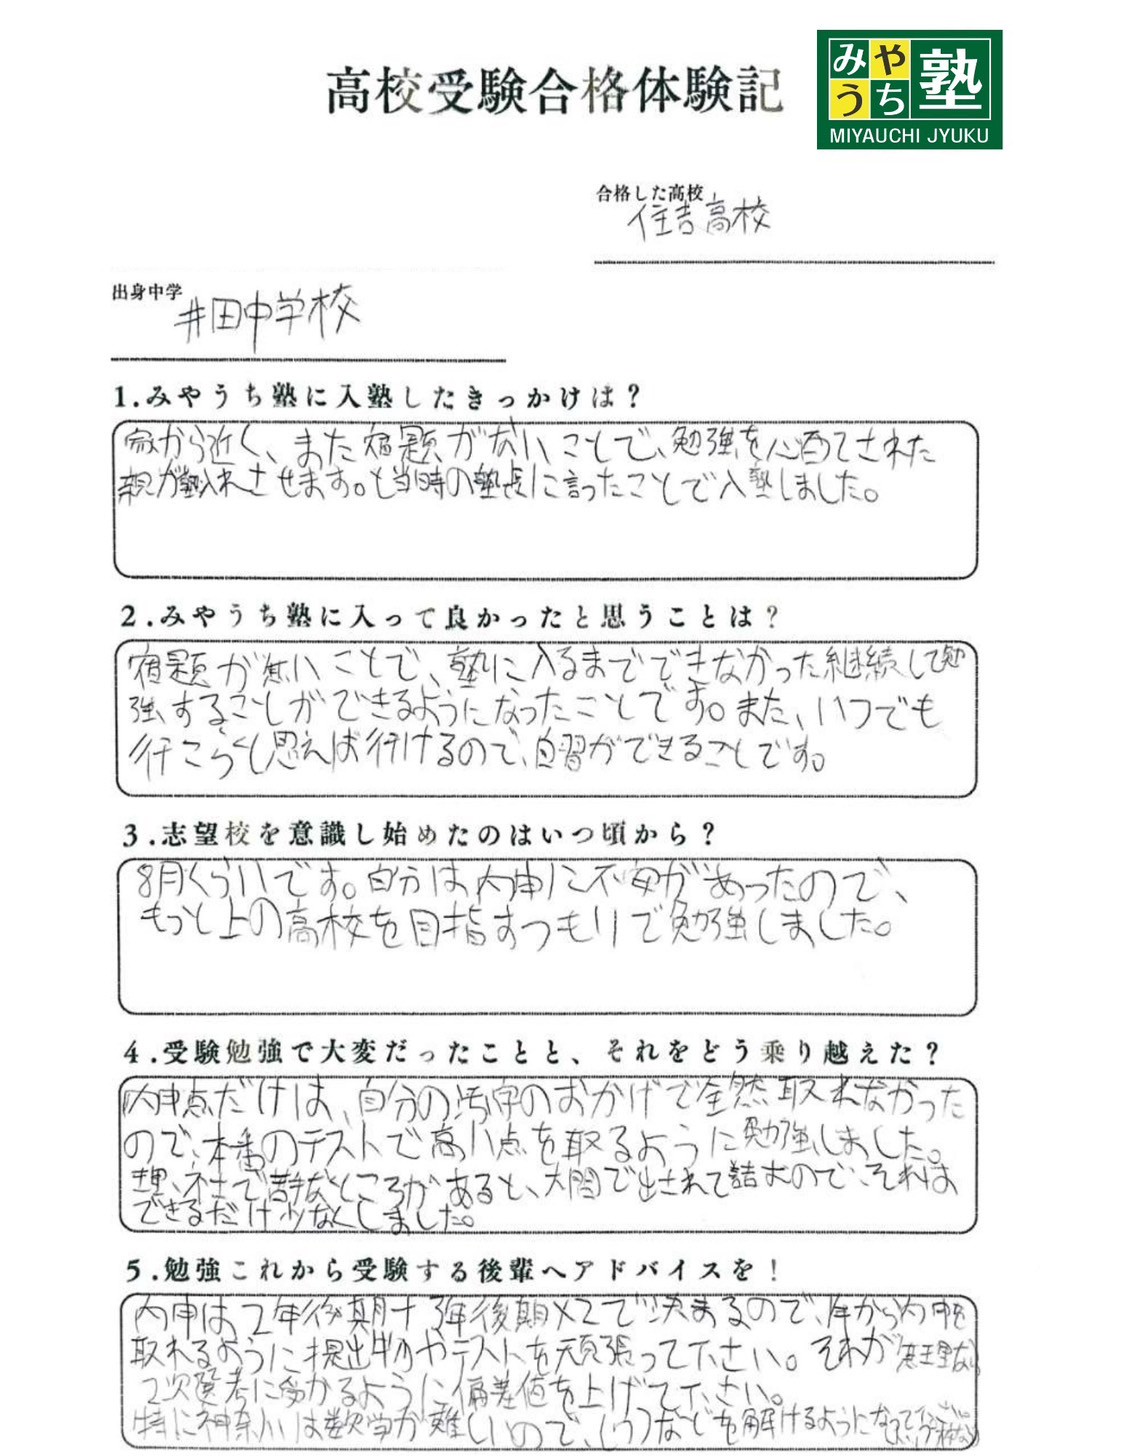 高校受験合格体験記
みや
うち
塾
MIYAUCHI JYUKU
合格した高校
住吉高校
出身中学
井田中学校
1.みやうち塾に入塾したきっかけは？
家から近く、また宿題が無いことで、勉強を心配してされた
親が塾入れさせます。と当時の塾長に言ったことで入塾しました。
2.みやうち塾に入って良かったと思うことは？
宿題が無いことで、塾に入るまでできなかった継続して勉
強することができるようになったことです。また、いつでも
行こうと思えば行けるので、自習ができることです。
3.志望校を意識し始めたのはいつ頃から？
8月くらいです。自分は内申に不安があったので、
もっと上の高校を目指すつもりで勉強しました。
4.受験勉強で大変だったことと、それをどう乗り越えた？
内申点だけは、自分の汚字のおかげで全然取れなかった
ので、本番のテストで高い点を取るように勉強しました。
理、社で苦手なところがあると、大問で出されて詰むので、それは
できるだけ少なくしました。
5.勉強これから受験する後輩へアドバイスを！
内申は2年後期+3年後期×2で決まるので、年から内申を
取れるように提出物やテストを頑張って下さい。それが無理なら
2次選考に受かるように偏差値を上げて下さい。
特に神奈川は数学が難しいので、(ウ)などを解けるようになって